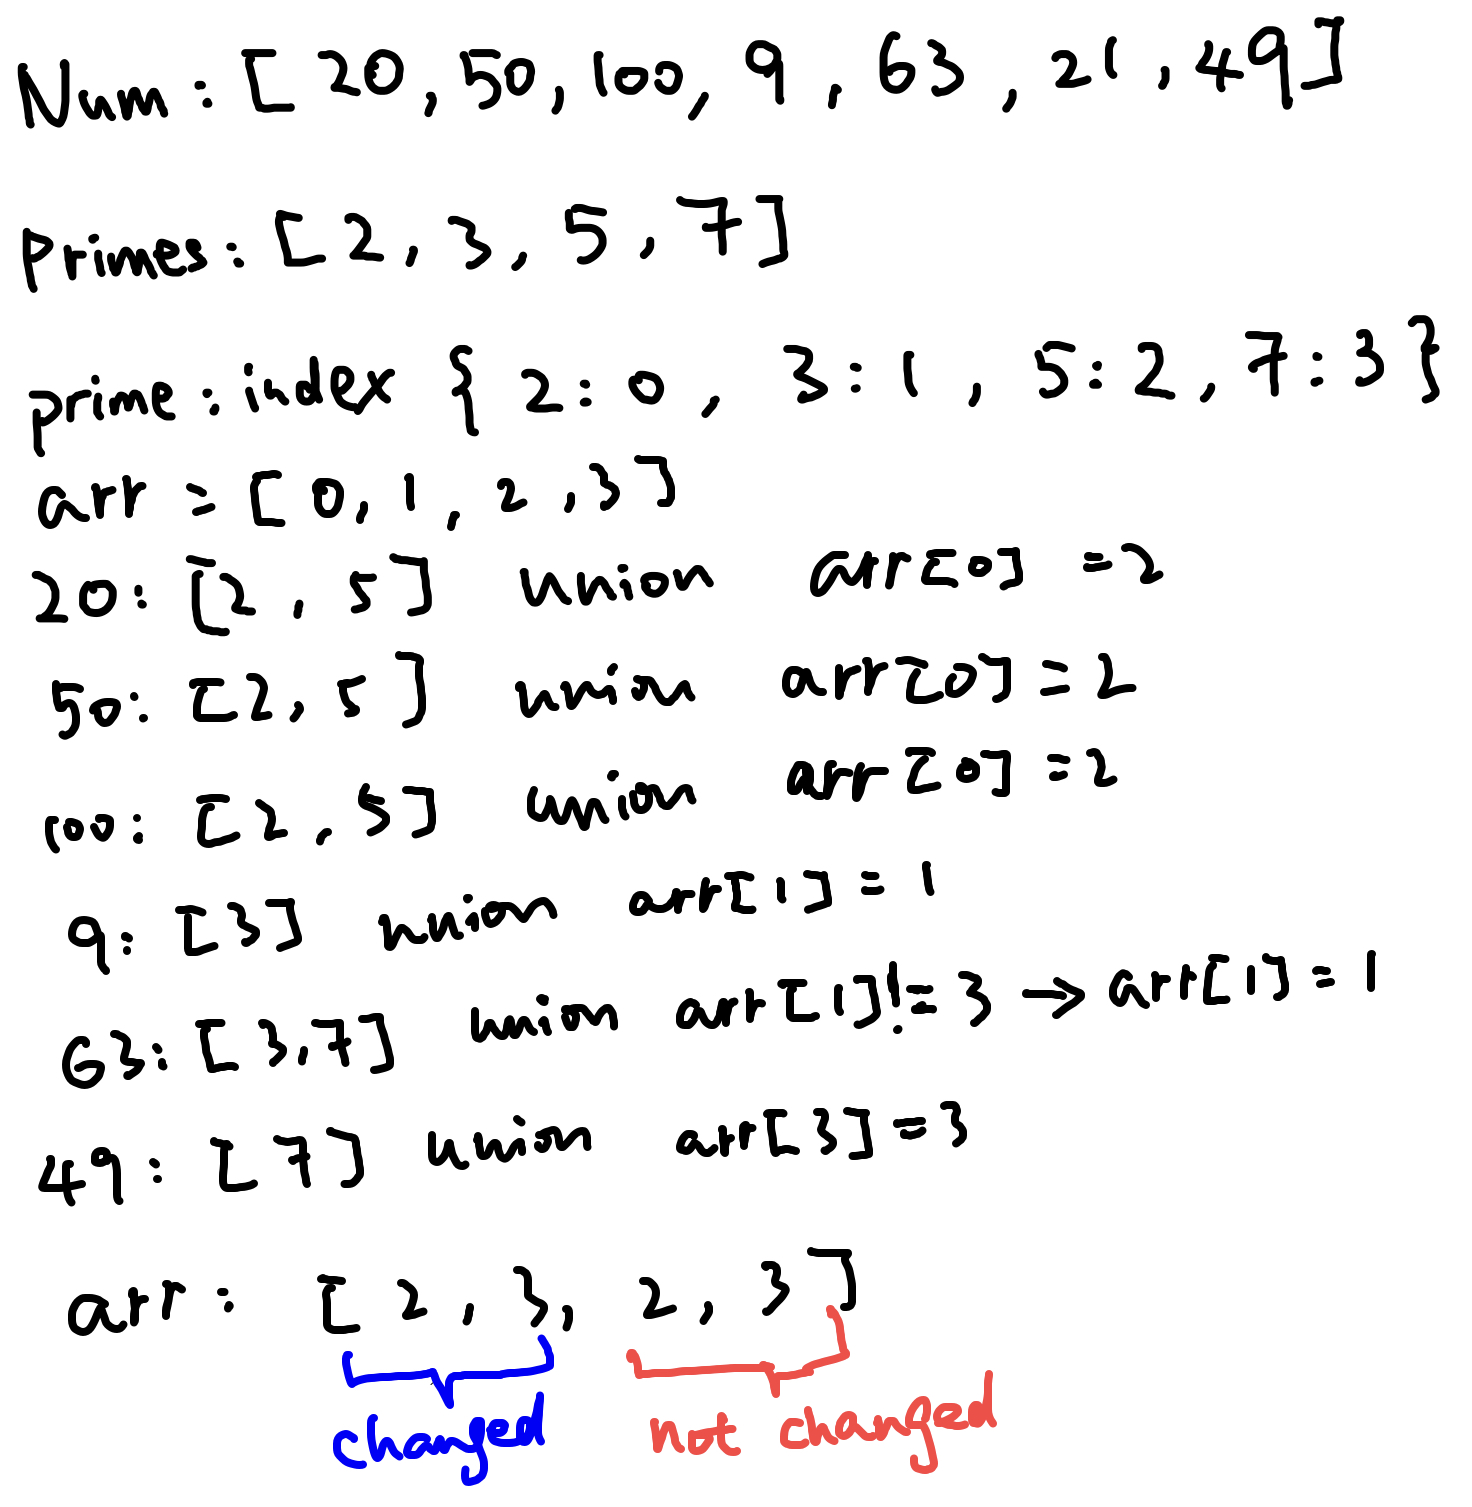 Num : [ 20, 50, 100, 9 , 63 , 21 , 49 ]
Primes : [ 2 , 3 , 5 , 7 ]
prime : index { 2 : 0 , 3 : 1 , 5 : 2 , 7 : 3 }
arr = [ 0, 1 , 2 , 3 ]
20 : [2 , 5 ] union arr[0] = 2
50 : [2, 5 ] union arr[0] = 2
100 : [ 2 , 5 ] union arr[0] = 2
9 : [3] union arr[1] = 1
63 : [ 3,7 ] union arr[1] != 3 → arr[1] = 1
49 : [ 7 ] union arr[3] = 3
arr : [ 2 , 3, 2 , 3 ]
changed not changed